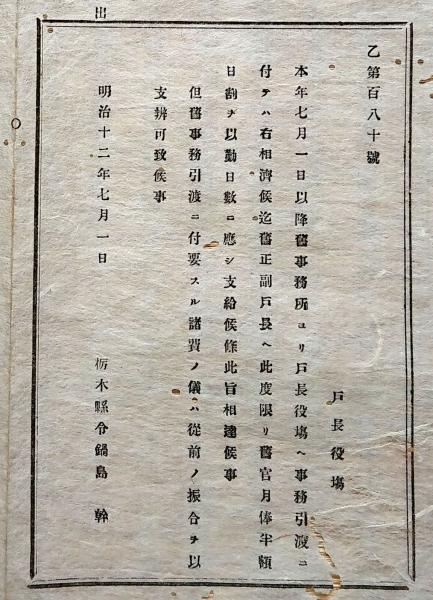 乙第百八十號
戸長役塲
本年七月一日以降舊事務所ヨリ戸長役塲ヘ事務引渡ニ
付テハ右相濟候迄舊正副戸長ヘ此度限リ舊官月俸半額
日割ヲ以勤日數ニ應シ支給候條此旨相達候事
但舊事務引渡ニ付要スル諸費ノ儀ハ從前ノ振合ヲ以
支辨可致候事
明治十二年七月一日
栃木縣令鍋島 幹
出